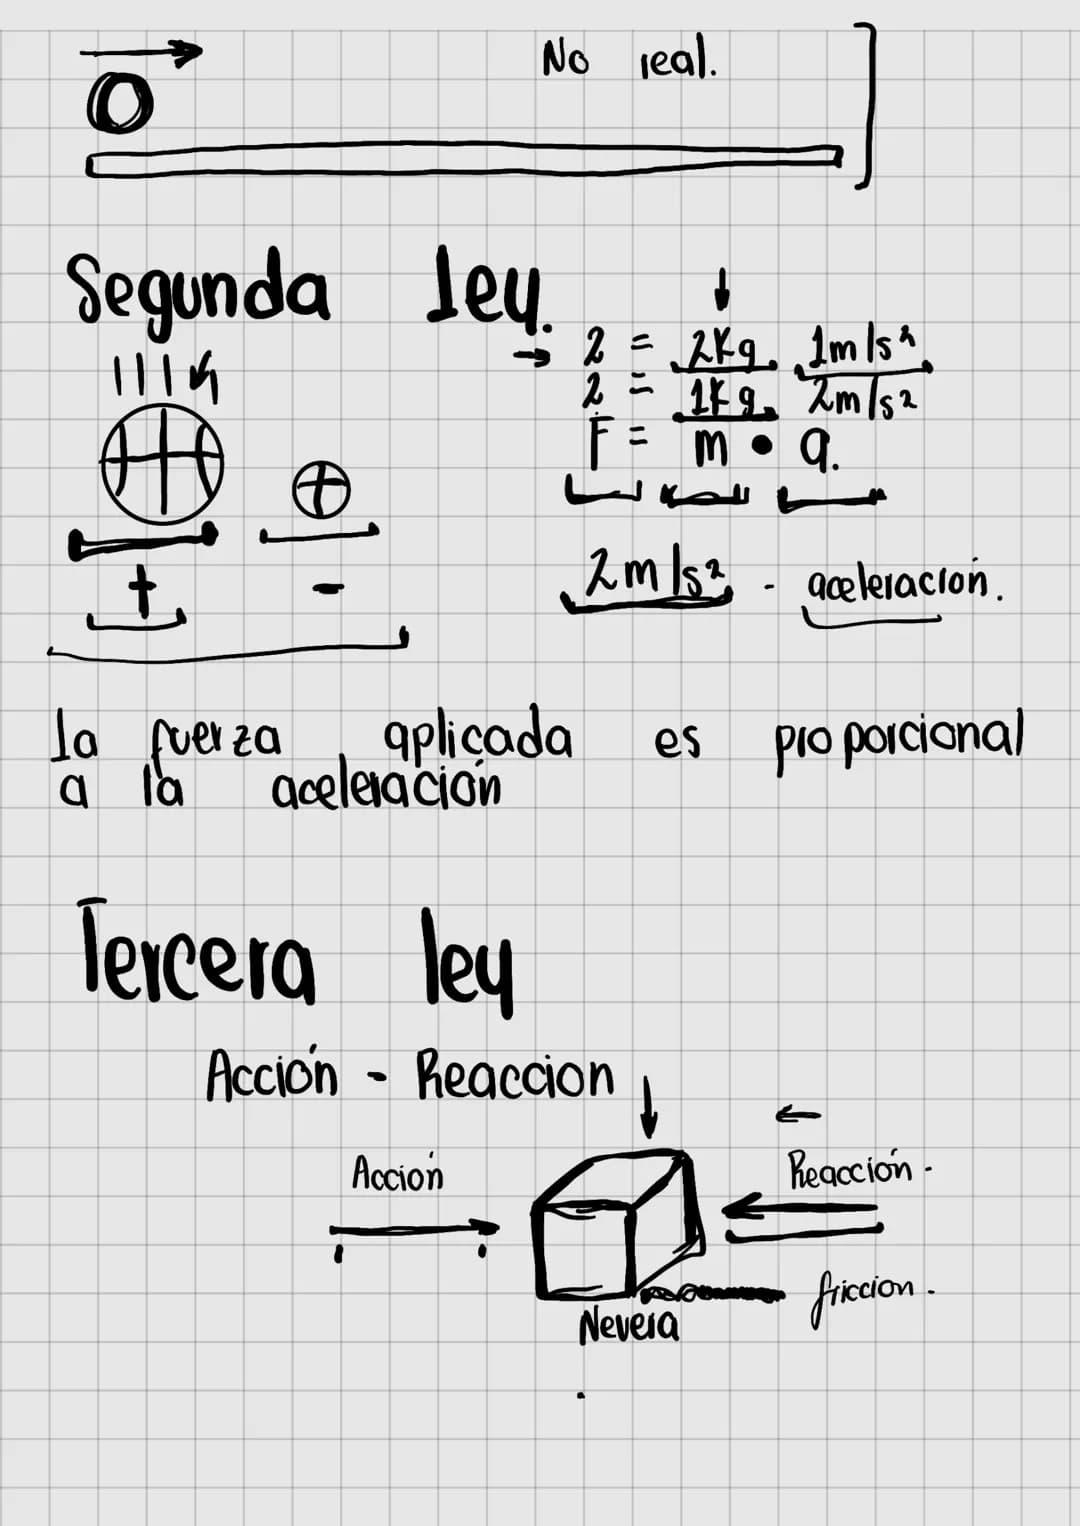 No real.
Segunda ley.
2 = 2Kg. 1m/s²
2 = 1Kg. 2m/s²
F = m • a.
+ -
2m/s² - aceleración.
la fuerza aplicada es proporcional
a la aceleración
Tercera ley
Acción - Reaccion
Acción
Reacción.
friccion.
Nevera